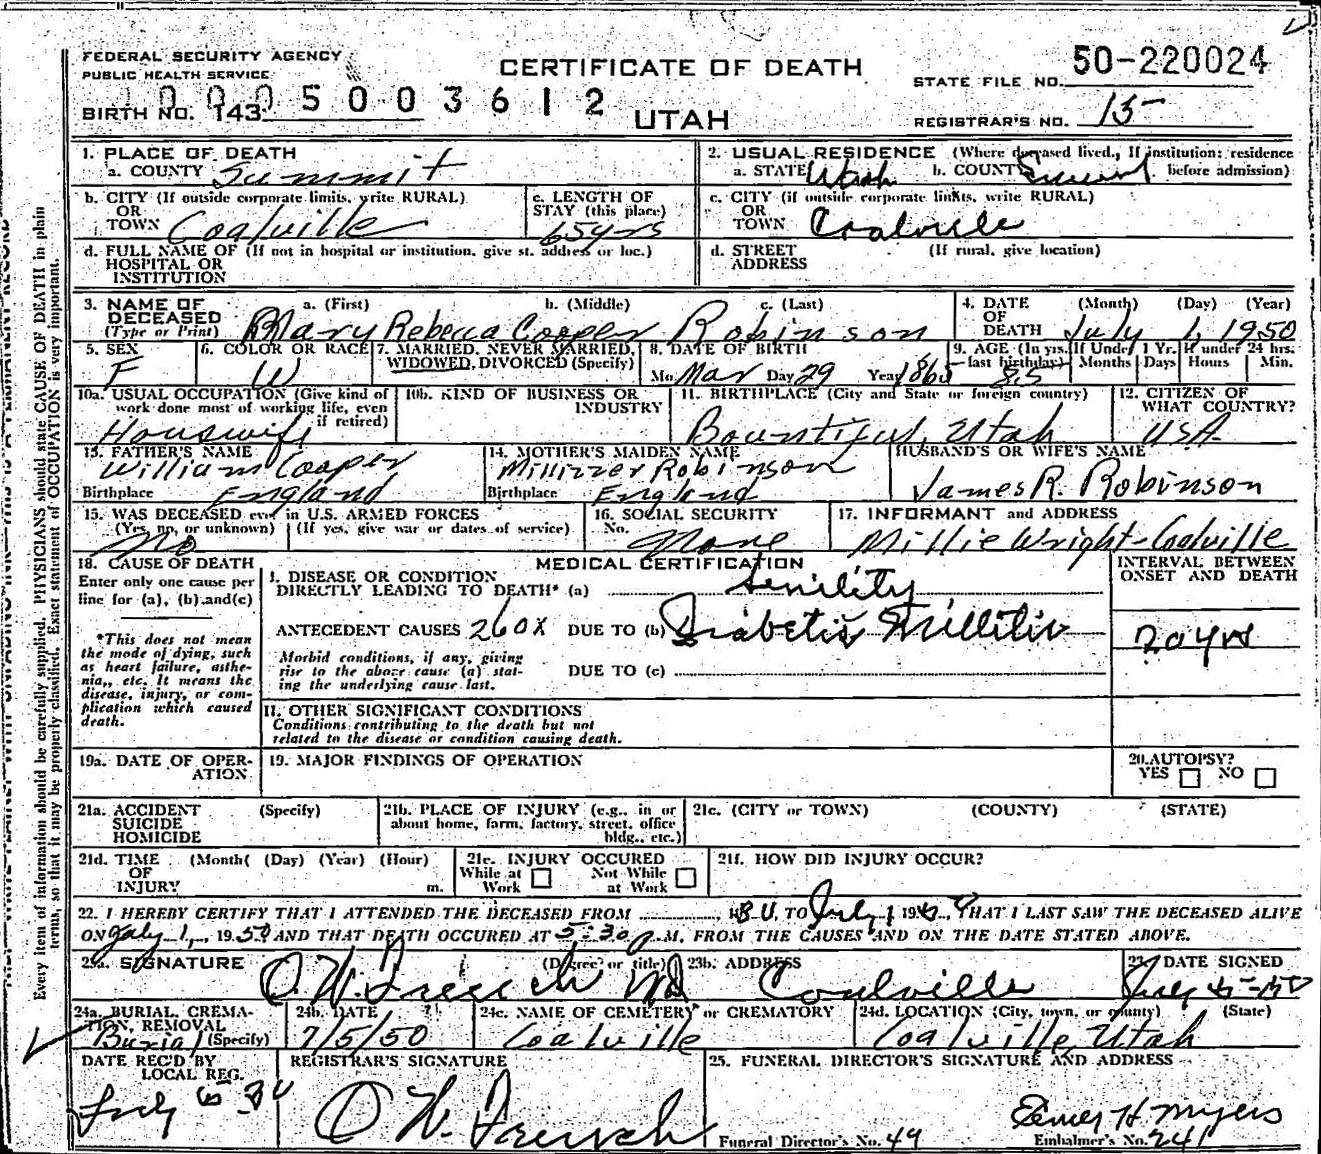 FEDERAL SECURITY AGENCY
PUBLIC HEALTH SERVICE
CERTIFICATE OF DEATH
STATE FILE NO. 50-220024
10005003612
BIRTH NO. 143
UTAH
REGISTRAR'S NO. 15
1. PLACE OF DEATH
a. COUNTY Summit
2. USUAL RESIDENCE (Where deceased lived, If institution: residence before admission)
a. STATE b. COUNTY Summit
b. CITY (If outside corporate limits, write RURAL)
OR
TOWN Coalville
c. LENGTH OF
STAY (this place)
65 yrs
c. CITY (if outside corporate limits, write RURAL)
OR
TOWN Coalville
d. FULL NAME OF (If not in hospital or institution, give st. address or loc.)
HOSPITAL OR
INSTITUTION
d. STREET (If rural, give location)
ADDRESS
3. NAME OF
DECEASED
(Type or Print)
a. (First) b. (Middle) c. (Last)
Mary Rebecca Cooper Robinson
4. DATE (Month) (Day) (Year)
OF
DEATH July 1, 1950
5. SEX
F
6. COLOR OR RACE
W
7. MARRIED, NEVER MARRIED,
WIDOWED, DIVORCED (Specify)
8. DATE OF BIRTH
Mo. Mar Day 29 Year 1865
9. AGE (In yrs.
last birthday)
85
If Under 1 Yr.
Months Days
If under 24 hrs.
Hours Min.
10a. USUAL OCCUPATION (Give kind of
work done most of working life, even
if retired)
Houswife
10b. KIND OF BUSINESS OR
INDUSTRY
11. BIRTHPLACE (City and State or foreign country)
Bountiful, Utah
12. CITIZEN OF
WHAT COUNTRY?
USA
13. FATHER'S NAME
William Cooper
Birthplace England
14. MOTHER'S MAIDEN NAME
Robinson
Birthplace England
HUSBAND'S OR WIFE'S NAME
James R. Robinson
15. WAS DECEASED ever in U.S. ARMED FORCES
(Yes, no, or unknown) (If yes, give war or dates of service)
No
16. SOCIAL SECURITY
No. None
17. INFORMANT and ADDRESS
Millie Wright-Coalville
18. CAUSE OF DEATH
Enter only one cause per
line for (a), (b) and (c)
*This does not mean
the mode of dying, such
as heart failure, asthe-
nia,, etc. It means the
disease, injury, or com-
plication which caused
death.
MEDICAL CERTIFICATION
I. DISEASE OR CONDITION
DIRECTLY LEADING TO DEATH* (a) Senility
ANTECEDENT CAUSES 260X DUE TO (b) Diabetis
Morbid conditions, if any, giving
rise to the above cause (a) stat-
ing the underlying cause last.
DUE TO (c)
INTERVAL BETWEEN
ONSET AND DEATH
20 yrs
II. OTHER SIGNIFICANT CONDITIONS
Conditions contributing to the death but not
related to the disease or condition causing death.
19a. DATE OF OPER-
ATION
19. MAJOR FINDINGS OF OPERATION
20. AUTOPSY?
YES NO
21a. ACCIDENT (Specify)
SUICIDE
HOMICIDE
21b. PLACE OF INJURY (e.g., in or
about home, farm, factory, street, office
bldg., etc.)
21c. (CITY or TOWN) (COUNTY) (STATE)
21d. TIME (Month( (Day) (Year) (Hour)
OF
INJURY m.
21e. INJURY OCCURED
While at Work Not While at Work
21f. HOW DID INJURY OCCUR?
22. I HEREBY CERTIFY THAT I ATTENDED THE DECEASED FROM TO July 1 19 THAT I LAST SAW THE DECEASED ALIVE
ON July 1, 1950 AND THAT DEATH OCCURED AT 5:30 p.M. FROM THE CAUSES AND ON THE DATE STATED ABOVE.
23a. SIGNATURE (Degree or title)
O. W. French MD
23b. ADDRESS
Coalville
23. DATE SIGNED
July
24a. BURIAL, CREMA-
TION, REMOVAL
(Specify)
Burial
24b. DATE
7/5/50
24c. NAME OF CEMETERY or CREMATORY
Coalville
24d. LOCATION (City, town, or county) (State)
Coalville, Utah
DATE REC'D BY
LOCAL REG.
July
REGISTRAR'S SIGNATURE
O W. French
25. FUNERAL DIRECTOR'S SIGNATURE AND ADDRESS
Elmer H. Myers
Funeral Director's No. 49 Embalmer's No. 241
Every item of information should be carefully supplied. PHYSICIANS should state CAUSE OF DEATH in plain
terms, so that it may be properly classified. Exact statement of OCCUPATION is very important.